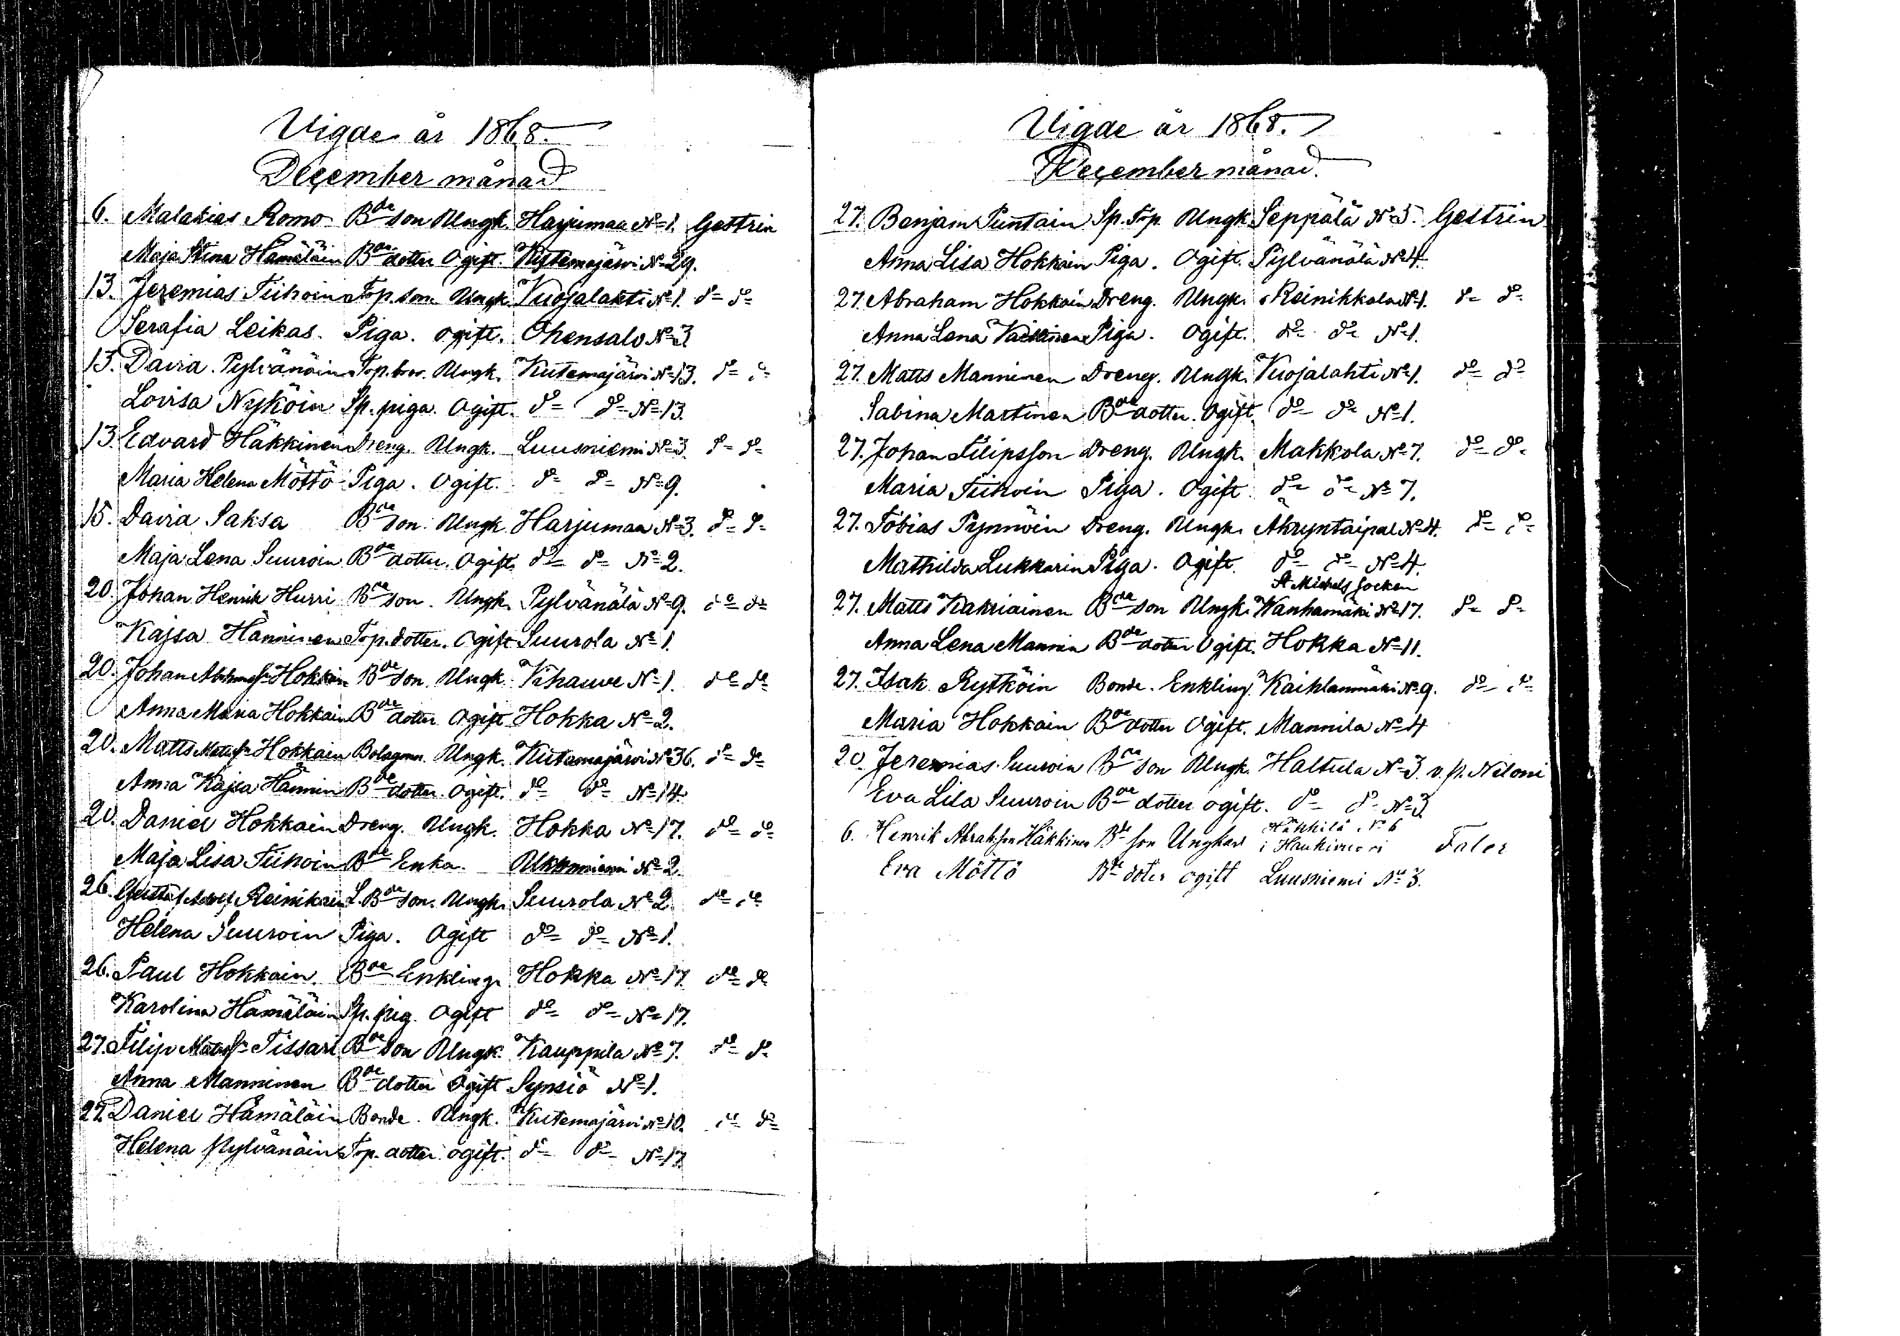 Vigde år 1868.
December månad
6. Malakias Romo Bde son Ungk. Harjumaa No 1. Gestrin
Maja Stina Hämäläin Bde dotter Ogift. Kutemajärvi No 29.
13. Jeremias Tiihoin Top. son Ungk. Vuojalahti No 1. do do
Serafia Leikas. Piga. ogift. Ohensalo No 3
13. David Pylvänäin Top. bror. Ungk. Kutemajärvi No 13. do do
Lovisa Nyköin Sp. piga. Ogift. do do No 13.
13. Edvard Häkkinen Dreng. Ungk. Luusniemi No 3. do do
Maria Helena Möttö Piga. Ogift. do do No 9.
15. David Saksa Bde son. Ungk. Harjumaa No 3. do do
Maja Lena Suuroin Bde dotter. Ogift. do do No 2.
20. Johan Henrik Hurri Bde son. Ungk. Pylvänälä No 9. do do
Kajsa Hänninen Top. dotter. Ogift Suurola No 1.
20. Johan Hokkain Bde son. Ungk. Vihauve No 1. do do
Anna Maria Hokkain Bde dotter Ogift Hokka No 2.
20. Matts Matsson Hokkain Bolagsm. Ungk. Kutemajärvi No 36. do do
Anna Kajsa Hännin Bde dotter. Ogift. do do No 14.
20. Daniel Hokkain Dreng. Ungk. Hokka No 17. do do
Maja Lisa Tiihoin Bde Enka. No 2.
26. Gustaf Adolf Reinikain L. Bde son. Ungk. Suurola No 2. do do
Helena Suuroin Piga. Ogift do do No 1.
26. Paul Hokkain. Bde Enkling. Hokka No 17. do do
Karolina Hämäläin Sp. pig. Ogift do do No 17.
27. Filip Matss. Tissari Bde son Ungk. Kauppila No 7. do do
Anna Manninen Bde dotter Ogift Synsiö No 1.
27. Daniel Hämäläin Bonde. Ungk. Kutemajärvi No 10. do do
Helena Pylvänäin Top. dotter ogift. do do No 17.
Vigde år 1868.
December månad.
27. Benjam Puntain Sp. Top. Ungk. Seppälä No 5. Gestrin
Anna Lisa Hokkain Piga. Ogift. Pylvänälä No 4.
27. Abraham Hokkain Dreng. Ungk. Reinikkala No 1. do do
Anna Lena Piga. Ogift. do do No 1.
27. Matts Manninen Dreng. Ungk. Vuojalahti No 1. do do
Sabina Martinen Bde dotter. Ogift. do do No 1.
27. Johan Filipsson Dreng. Ungk. Makkola No 7. do do
Maria Tiihoin Piga. Ogift. do do No 7.
27. Tobias Pynnöin Dreng. Ungk. No 4. do do
Mathilda Lukkarin Piga. Ogift. do do No 4.
St Michels Socken
27. Matts Kakriainen Bde son Ungk. Wanhamäki No 17. do do
Anna Lena Mannin Bde dotter Ogift. Hokka No 11.
27. Isak Rytköin Bonde. Enkling. Kaihlanmäki No 9. do do
Maria Hokkain Bde dotter Ogift. Mannila No 4
20. Jeremias Suuroin Bde son Ungk. Haltula No 3. v. p. Neloni
Eva Lisa Suuroin Bde dotter ogift. do do No 3.
Häkkilä No 6
6. Henrik Abrahsson Häkkinen Bde son Ungkarl i Haukivuori Faler
Eva Möttö Bde doter ogift Luusniemi No 3.